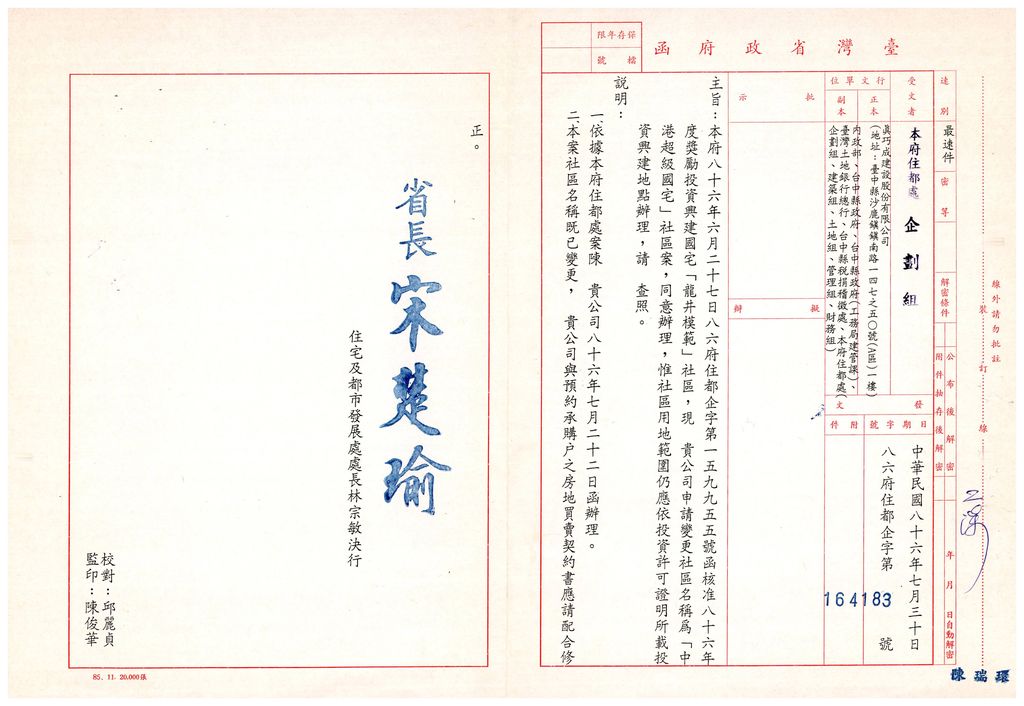 臺灣省政府函
保存年限
檔號
速別
最速件
密等
解密條件
公布後解密
附件抽存後解密
年 月 日自動解密
受文者
本府住都處 企劃組
行文單位
正本
真巧成建設股份有限公司
(地址：臺中縣沙鹿鎮鎮南路一四七之五〇號(A區)一樓)
副本
內政部、台中縣政府、台中縣政府(工務局建管課)、
臺灣土地銀行總行、台中縣稅捐稽徵處、本府住都處(
企劃組、建築組、土地組、管理組、財務組)
發文
日期
中華民國八十六年七月三十日
字號
八六府住都企字第
164183
號
附件
批示
擬辦
主旨：本府八十六年六月二十七日八六府住都企字第一五九九五五號函核准八十六年
度獎勵投資興建國宅「龍井模範」社區，現　貴公司申請變更社區名稱為「中
港超級國宅」社區案，同意辦理，惟社區用地範圍仍應依投資許可證明所載投
資興建地點辦理，請　查照。
説明：
一、依據本府住都處案陳　貴公司八十六年七月二十二日函辦理。
二、本案社區名稱既已變更，　貴公司與預約承購户之房地買賣契約書應請配合修
正。
省長 宋楚瑜
住宅及都市發展處處長林宗敏決行
校對：邱麗貞
監印：陳俊華
85. 11. 20,000張
線外請勿批註
裝
訂
線
陳瑞環